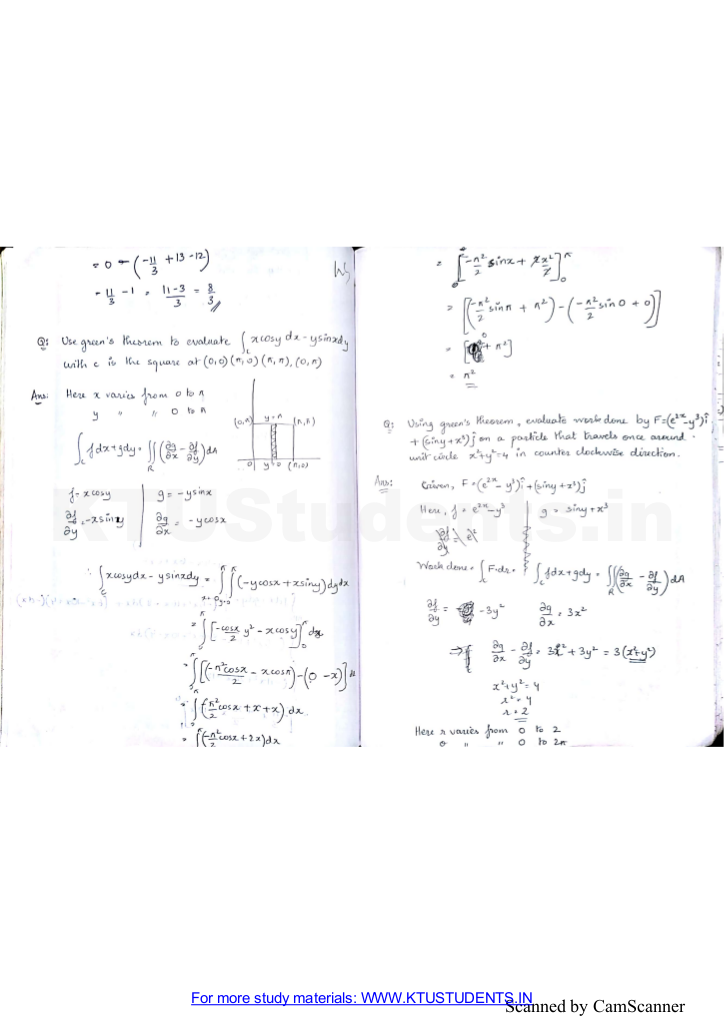 = 0 - (-11/3 + 13 - 12)
= 11/3 - 1 = (11-3)/3 = 8/3
Q: Use green's theorem to evaluate ∫_c xcosy dx - ysinxdy
with c is the square at (0,0) (π,0) (π,π), (0,π)
Ans: Here x varies from 0 to π
y " " 0 to π
(0,π) y=π (π,π)
0 y=0 (π,0)
∫_c fdx+gdy = ∬_R (∂g/∂x - ∂f/∂y) dA
f = xcosy | g = -ysinx
∂f/∂y = -xsiny | ∂g/∂x = -ycosx
∴ ∫_c xcosydx - ysinxdy = ∫_{x=0}^π ∫_{y=0}^π (-ycosx + xsiny) dydx
= ∫_0^π [-cosx/2 y² - xcosy]_0^π dx
= ∫_0^π [(-π²cosx/2 - xcosπ) - (0 - x)] dx
= ∫_0^π (-π²/2 cosx + x + x) dx
= ∫(-π²/2 cosx + 2x) dx
= [-π²/2 sinx + 2x²/2]_0^π
= [(-π²/2 sinπ + π²) - (-π²/2 sin0 + 0)]
= [0 + π²]
= π²
Q: Using green's theorem, evaluate work done by F=(e^{2x} - y³)î
+ (siny + x³)ĵ on a particle that travels once around
unit circle x²+y²=4 in counter clockwise direction.
Ans: Given, F = (e^{2x} - y³)î + (siny + x³)ĵ
Here, f = e^{2x} - y³ g = siny + x³
Work done = ∫_c F·dr = ∫_c fdx+gdy = ∬_R (∂g/∂x - ∂f/∂y) dA
∂f/∂y = -3y² ∂g/∂x = 3x²
⇒ ∂g/∂x - ∂f/∂y = 3x² + 3y² = 3(x²+y²)
x²+y² = 4
r² = 4
r = 2
Here r varies from 0 to 2
θ " " 0 to 2π
KTUStudents.in
For more study materials: WWW.KTUSTUDENTS.IN
Scanned by CamScanner